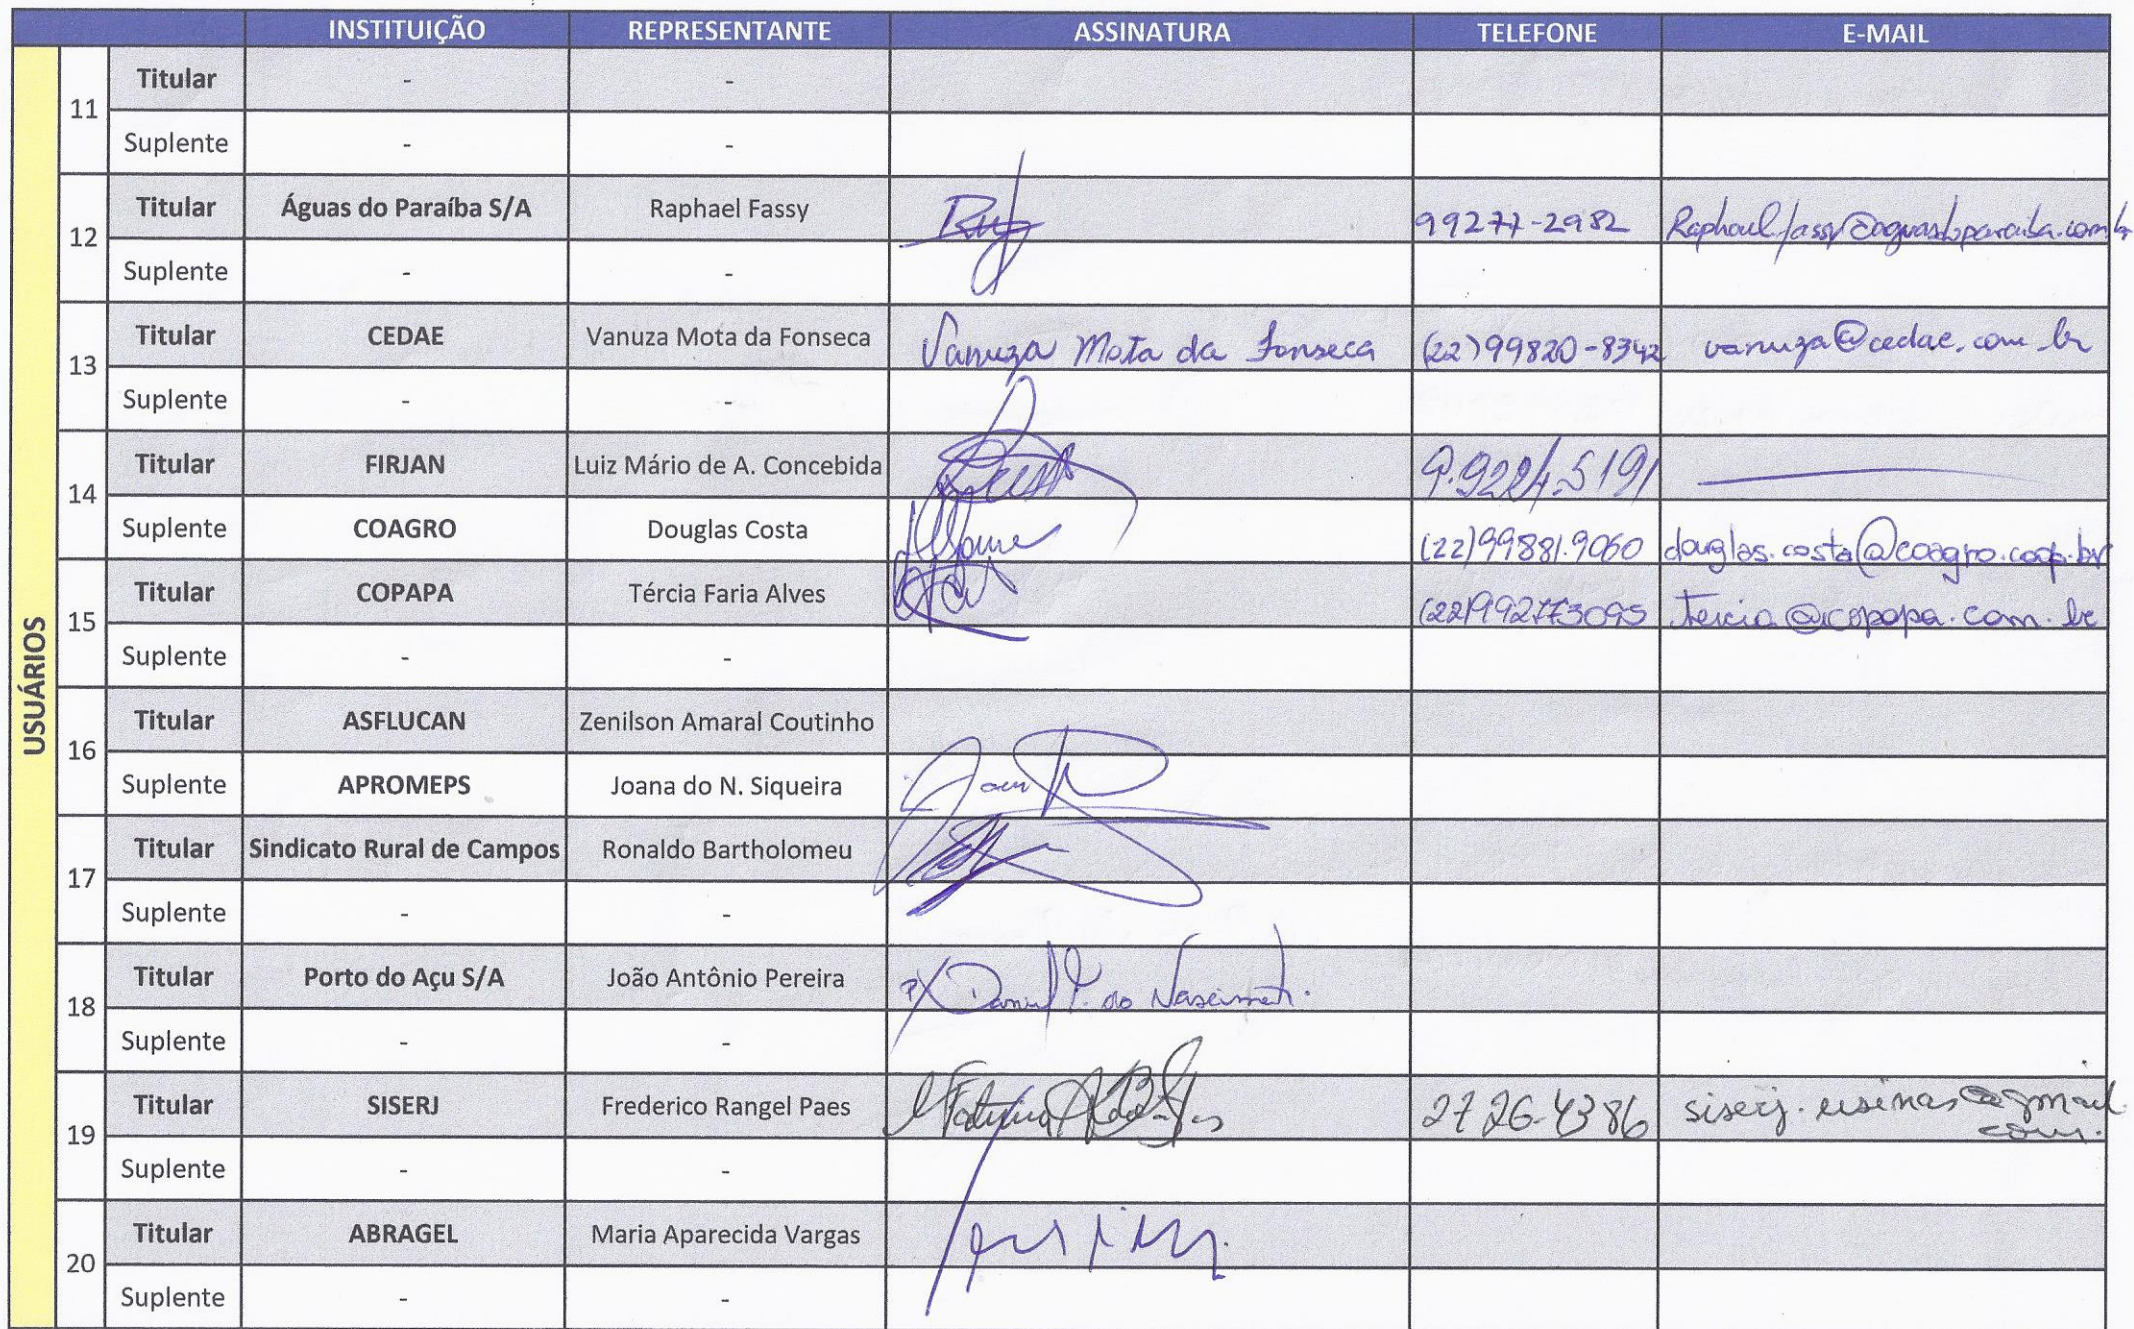 INSTITUIÇÃO REPRESENTANTE ASSINATURA TELEFONE E-MAIL
USUÁRIOS
11
Titular - -
Suplente - -
12
Titular Águas do Paraíba S/A Raphael Fassy 99277-2982
Suplente - -
13
Titular CEDAE Vanuza Mota da Fonseca Vanuza Mota da Fonseca (22)99820-8342 vanuza@cedae.com.br
Suplente - -
14
Titular FIRJAN Luiz Mário de A. Concebida 9.9224.5191
Suplente COAGRO Douglas Costa (22)99881.9060 douglas.costa@coagro.coop.br
15
Titular COPAPA Tércia Faria Alves (22)992773095 tercia@copapa.com.br
Suplente - -
16
Titular ASFLUCAN Zenilson Amaral Coutinho
Suplente APROMEPS Joana do N. Siqueira
17
Titular Sindicato Rural de Campos Ronaldo Bartholomeu
Suplente - -
18
Titular Porto do Açu S/A João Antônio Pereira
Suplente - -
19
Titular SISERJ Frederico Rangel Paes 2726-4386 siserj.usinas@gmail.
com.
Suplente - -
20
Titular ABRAGEL Maria Aparecida Vargas
Suplente - -